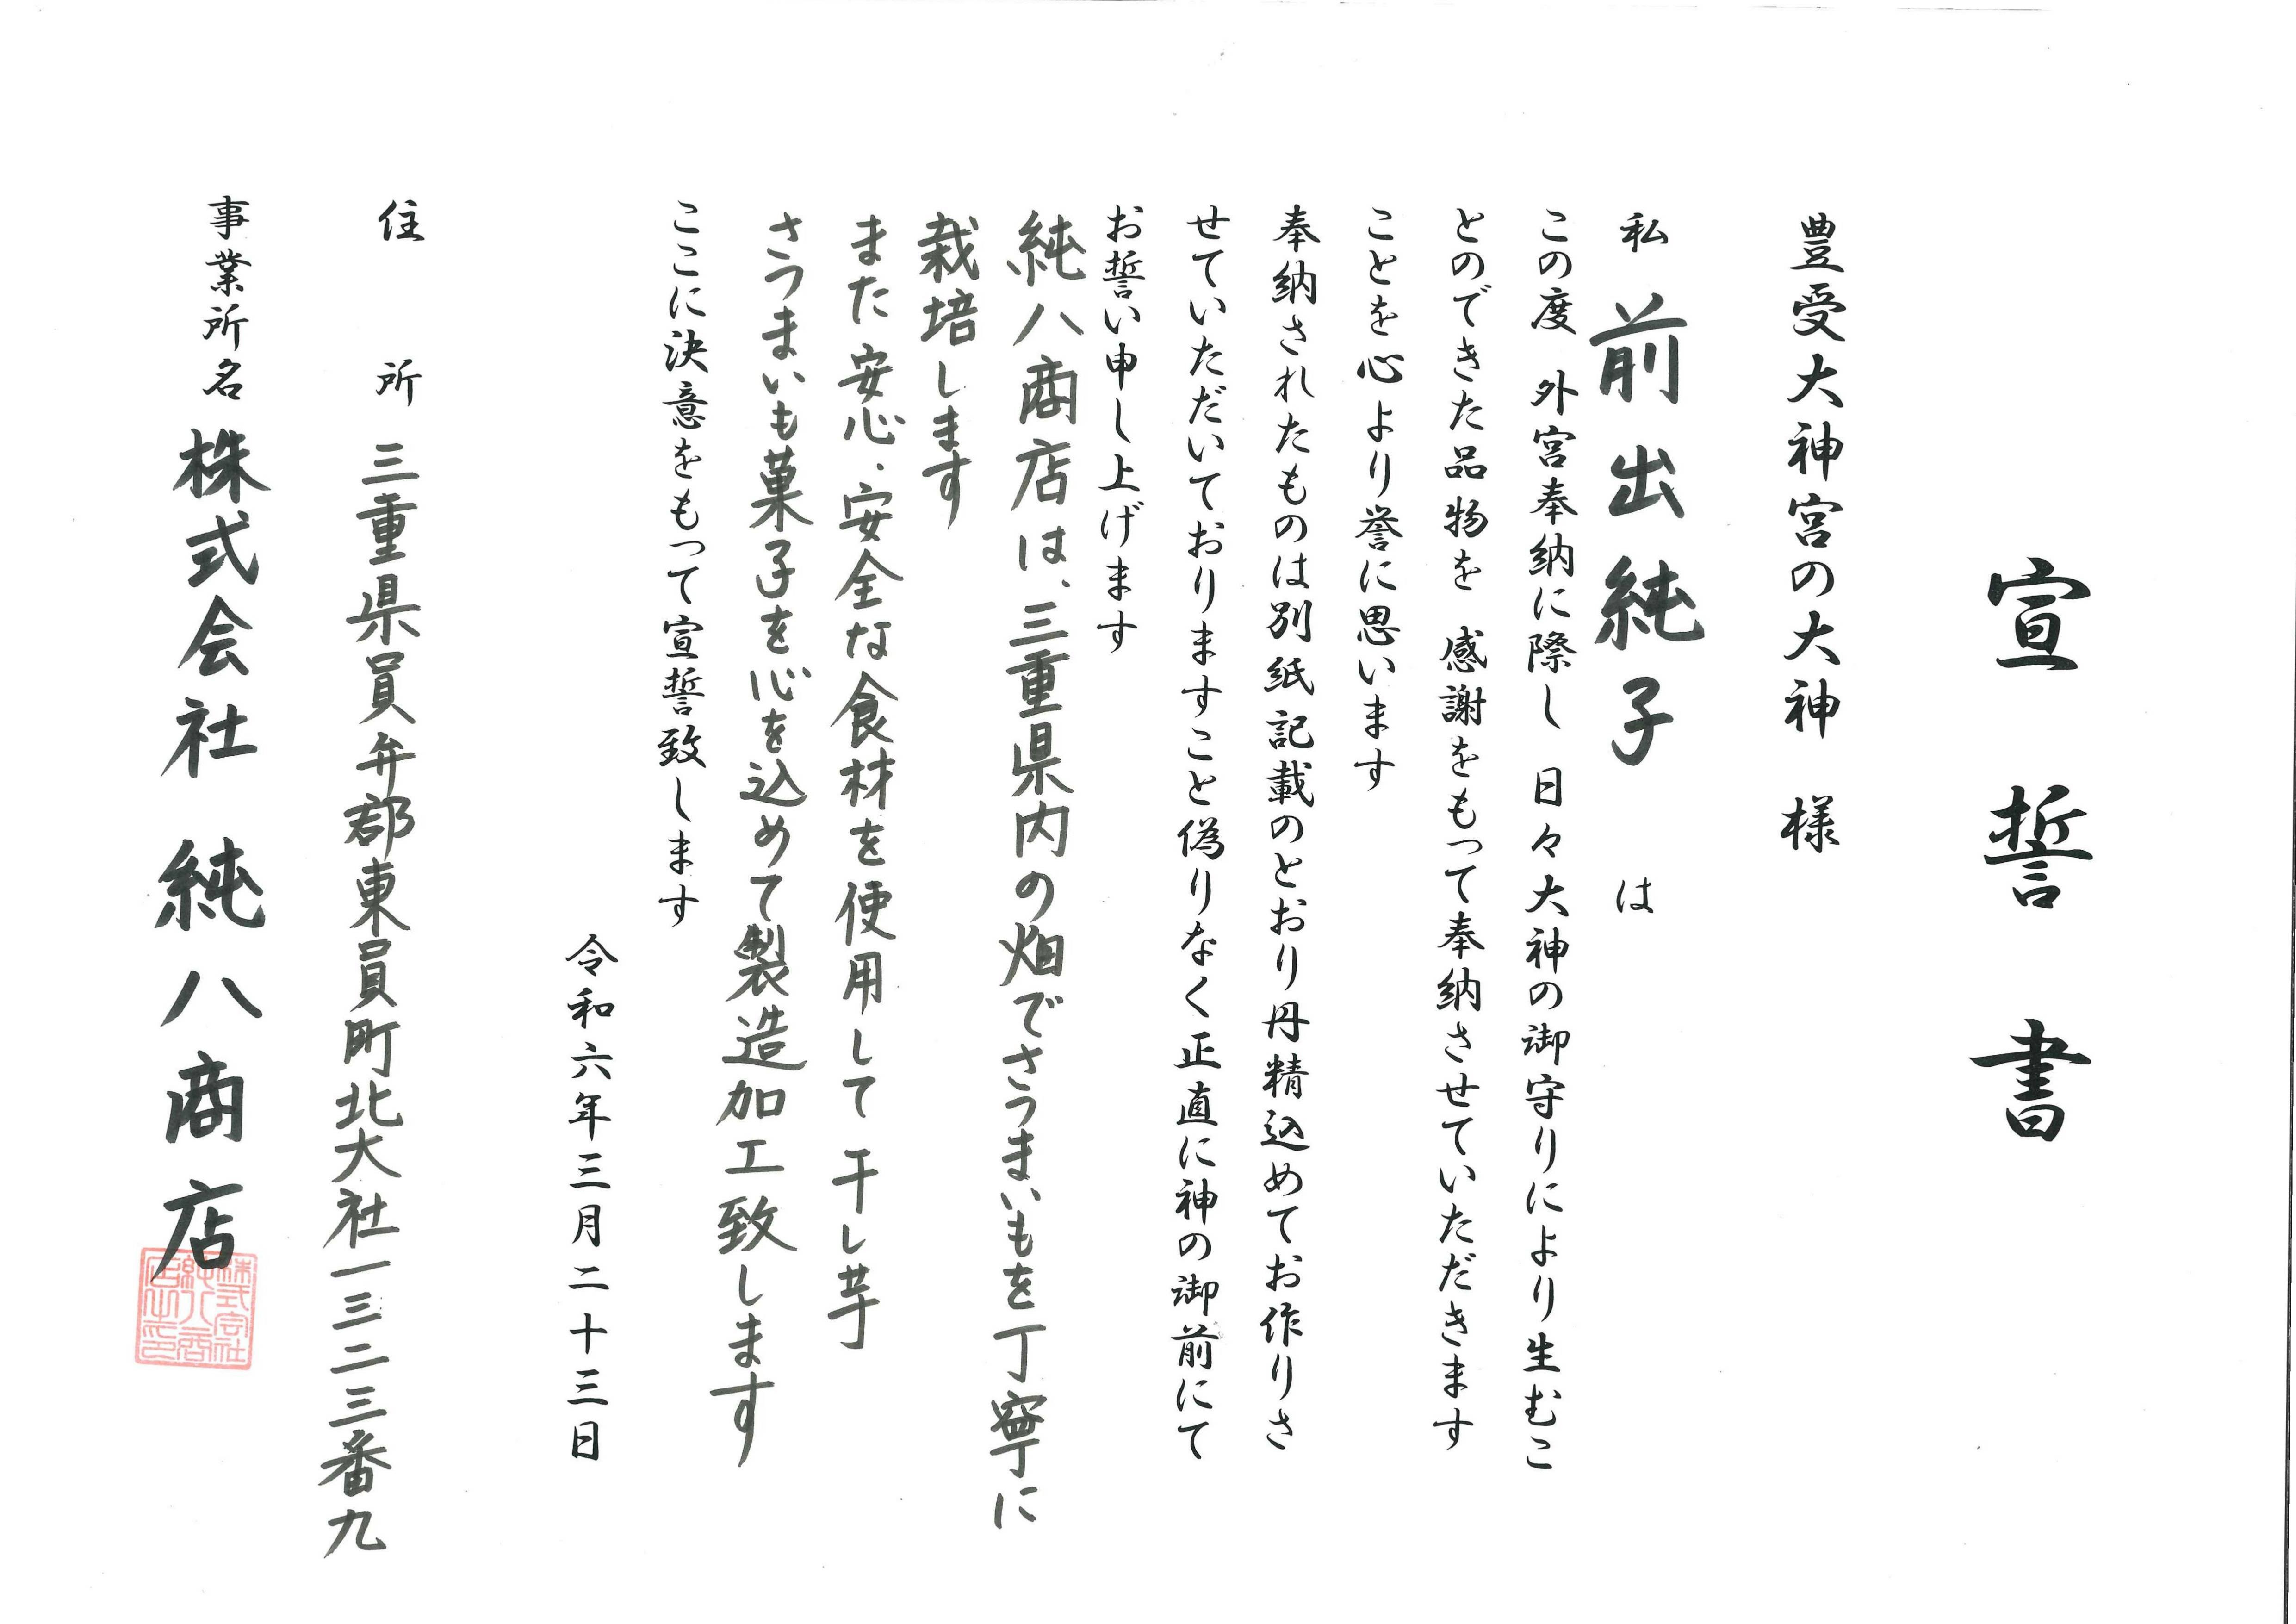 宣誓書
豊受大神宮の大神 様
私 前出純子 は
この度 外宮奉納に際し 日々大神の御守りにより生むこ
とのできた品物を 感謝をもって奉納させていただきます
ことを心より誉に思います
奉納されたものは別紙記載のとおり丹精込めてお作りさ
せていただいておりますこと偽りなく正直に神の御前にて
お誓い申し上げます
純八商店は、三重県内の畑でさつまいもを丁寧に
栽培します
また安心・安全な食材を使用して干し芋
さつまいも菓子を心を込めて製造加工致します
ここに決意をもって宣誓致します
令和六年三月二十三日
住所 三重県員弁郡東員町北大社一三二三番九
事業所名 株式会社 純八商店
株式会社
純八商
店之印